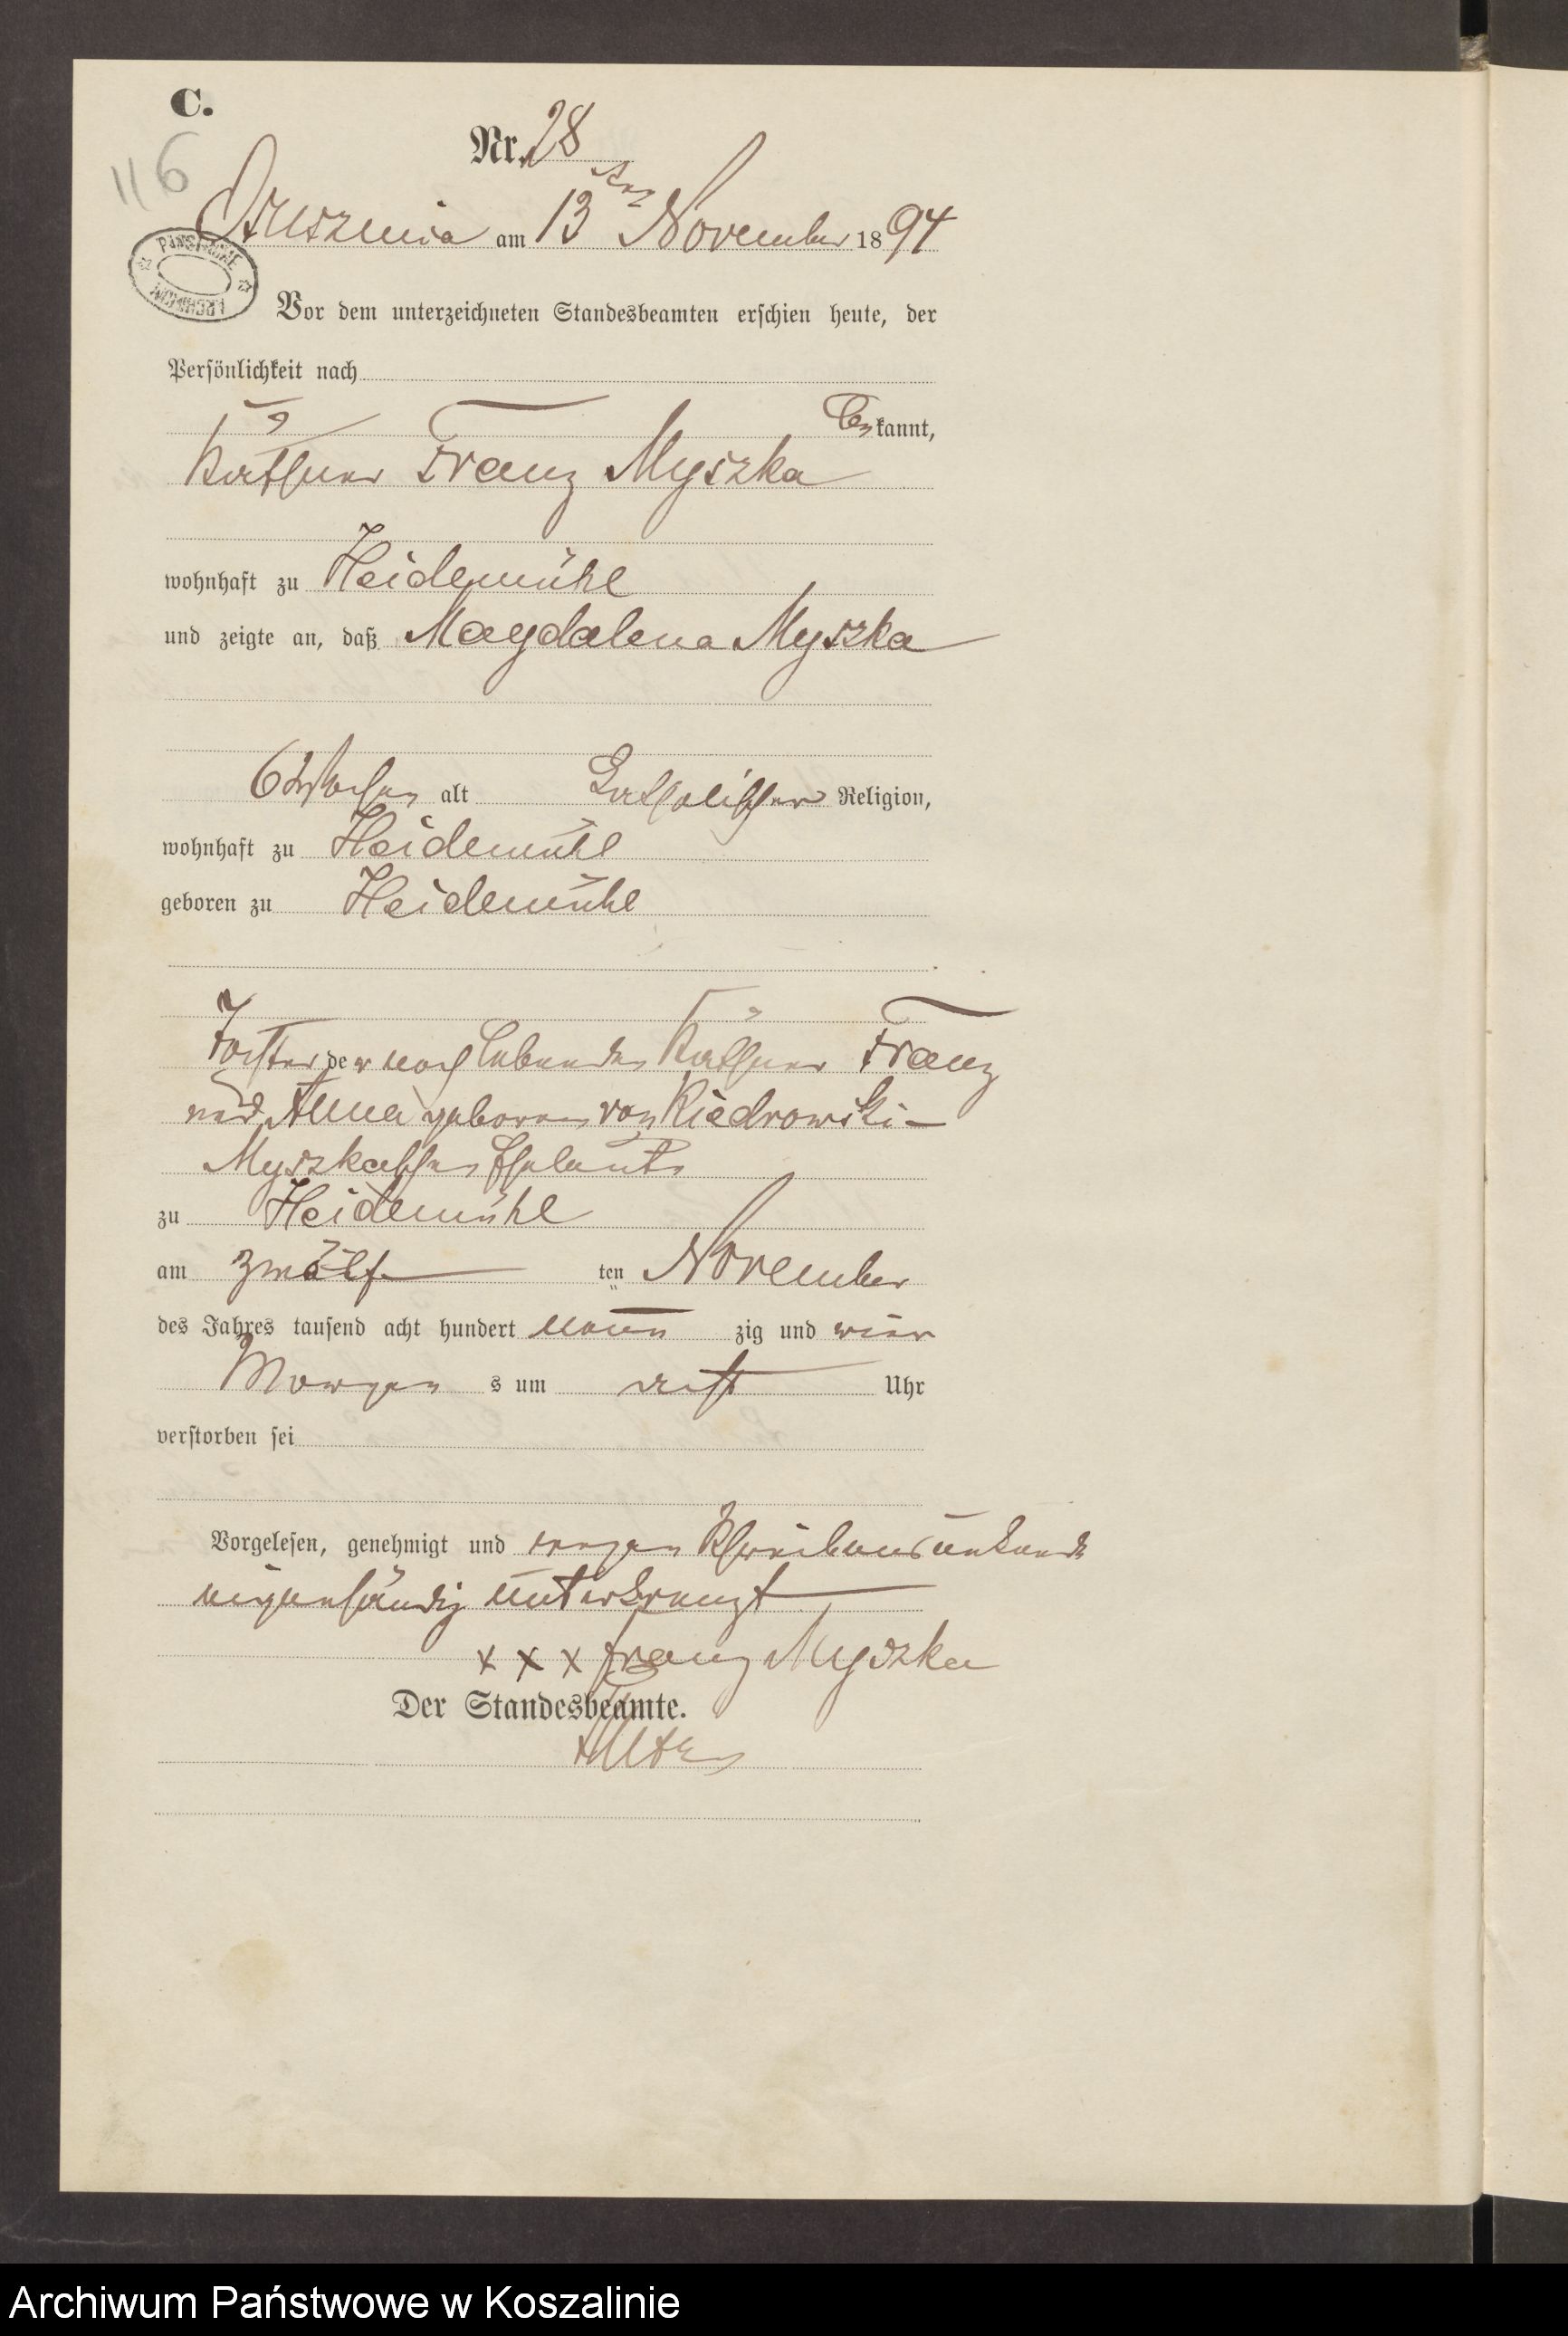 C.
116
Nr. 28
Oszuszniza am 13ten November 1894
PAŃSTWOWE ARCHIWUM
Vor dem unterzeichneten Standesbeamten erschien heute, der
Persönlichkeit nach
bekannt,
Käthner Franz Myszka
wohnhaft zu Heidemühl
und zeigte an, daß Magdalena Myszka
6 Wochen alt katholischer Religion,
wohnhaft zu Heidemühl
geboren zu Heidemühl
Tochter der noch lebenden Käthner Franz
und Anna geborene von Kiedrowski-
Myszkaschen Eheleute
zu Heidemühl
am zwölf ten November
des Jahres tausend acht hundert neun zig und vier
Morgen s um acht Uhr
verstorben sei
Vorgelesen, genehmigt und wegen Schreibensunkunde
eigenhändig unterkreuzt
x x x Franz Myszka
Der Standesbeamte.
Archiwum Państwowe w Koszalinie